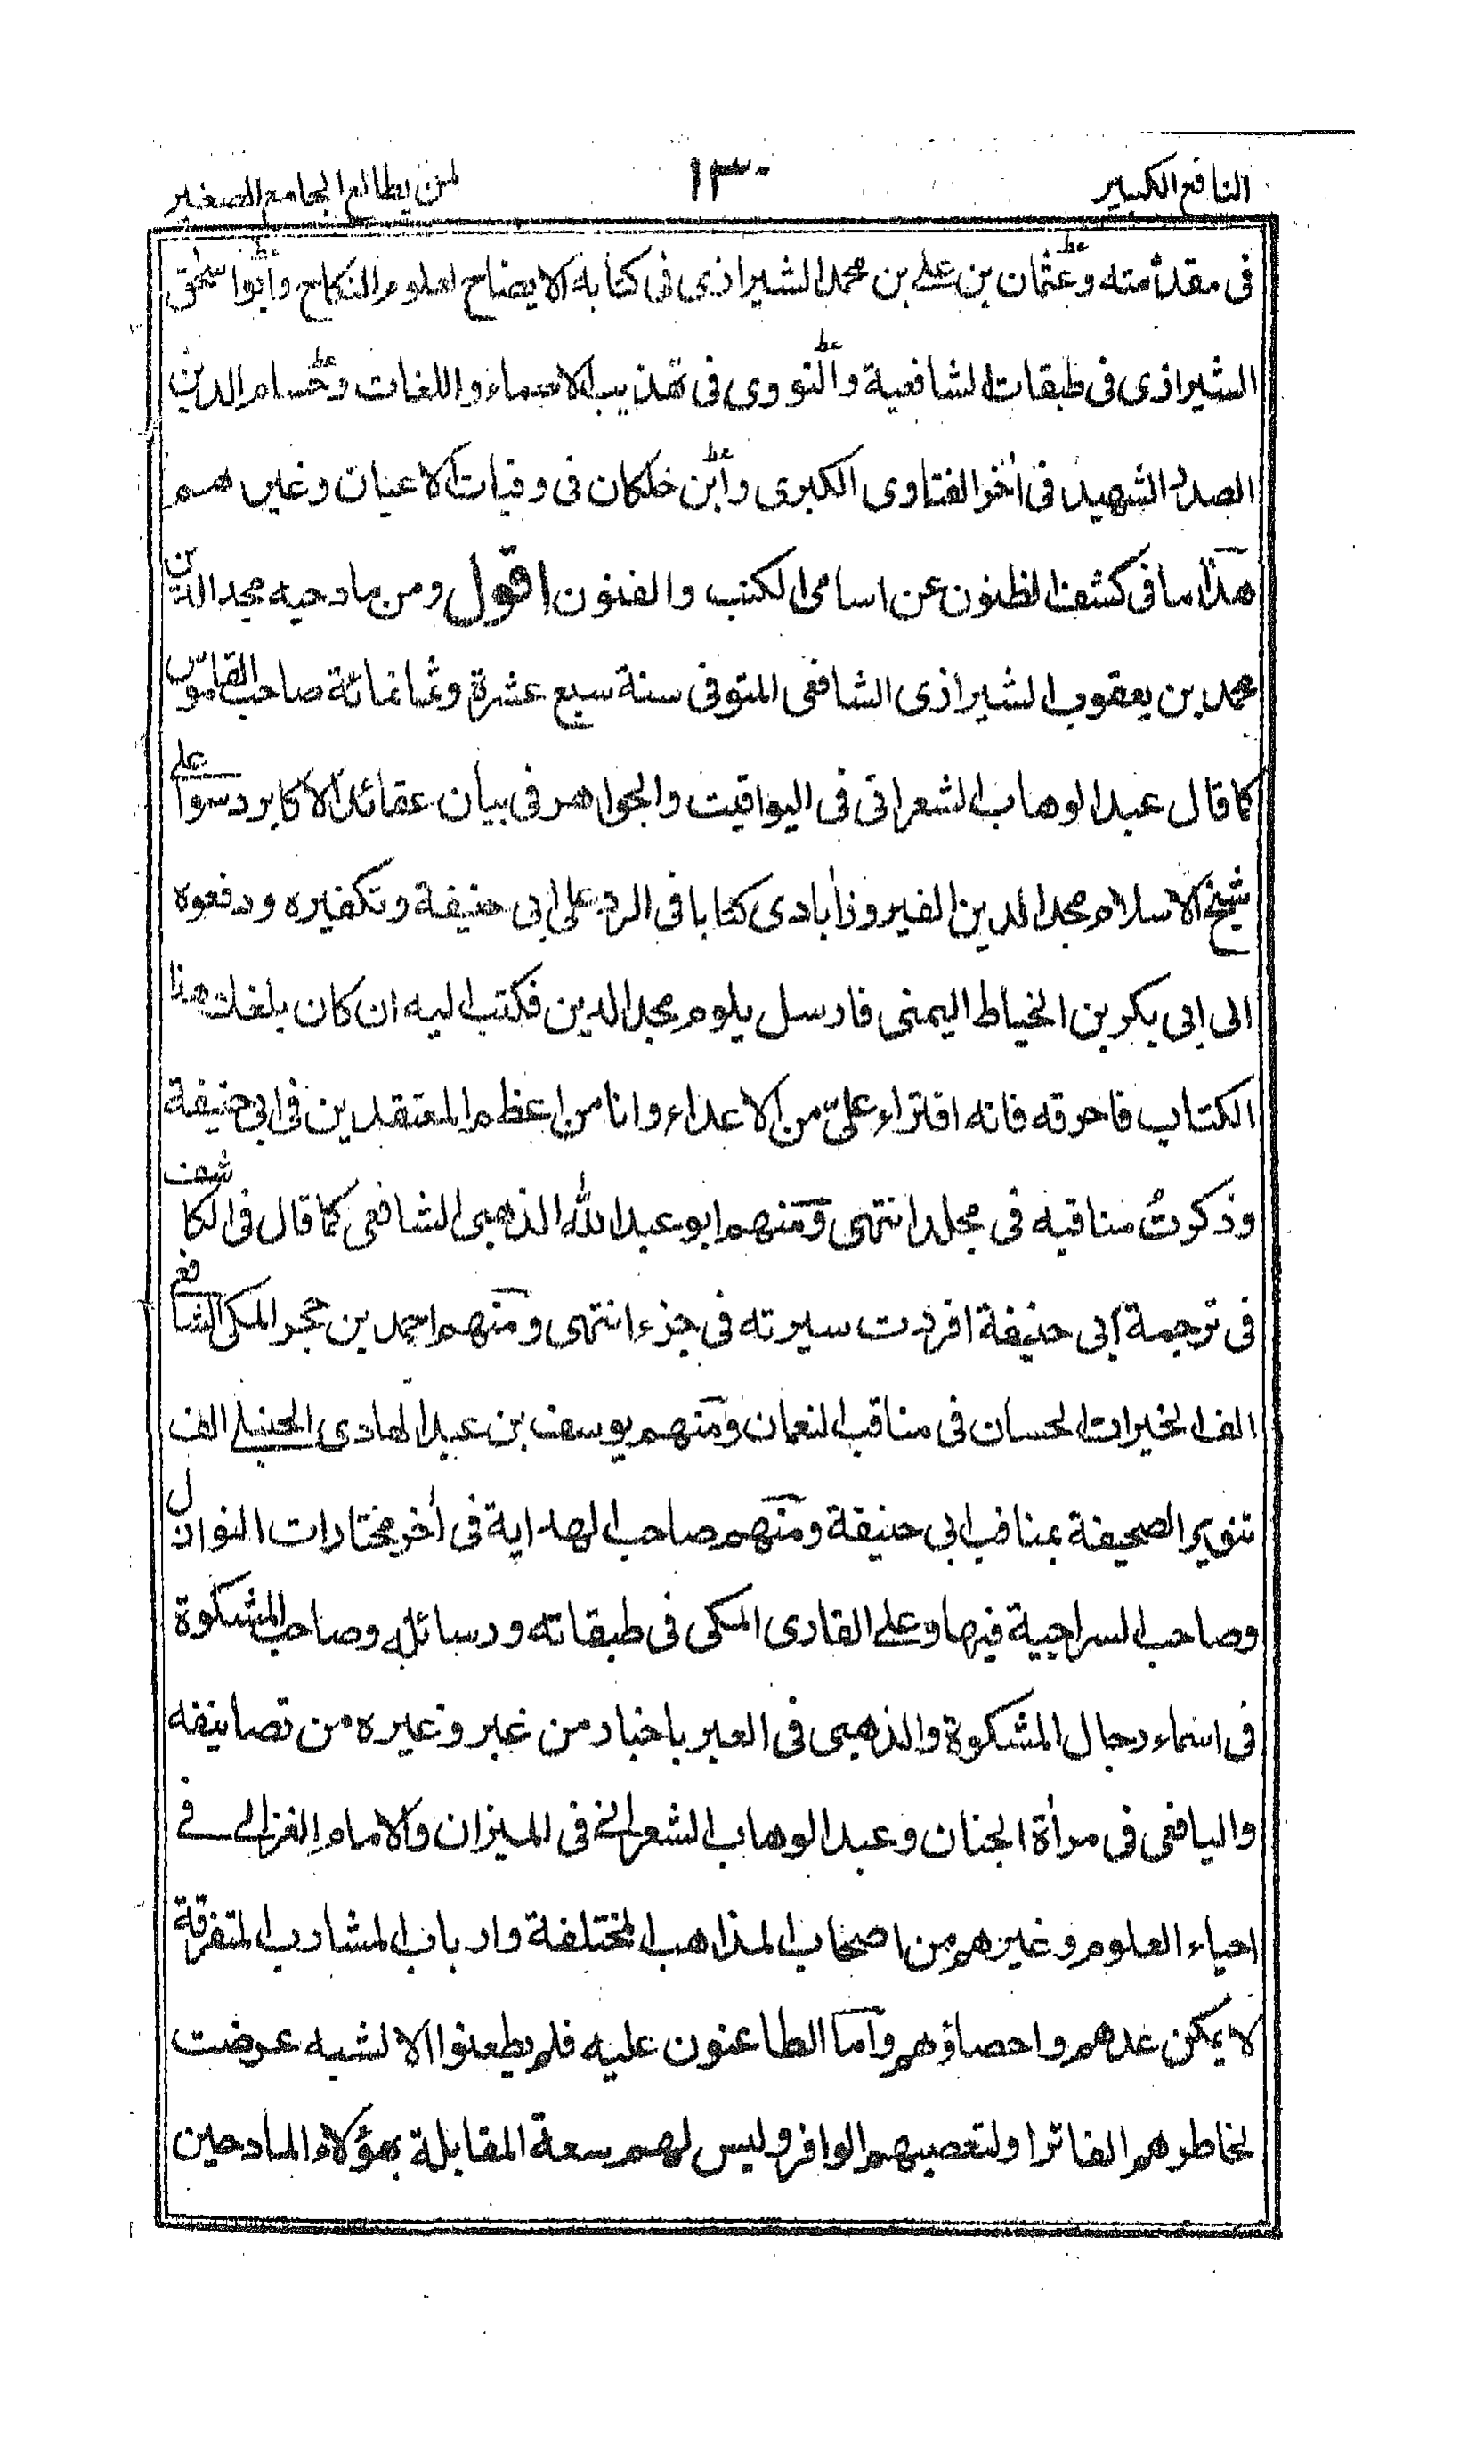 النافع الكبير ١٣٠ لمن يطالع الجامع الصغير
فى مقدمته وعثمان بن على بن محمد الشيرازى فى كتابه الايضاح لعلوم النكاح وابو اسحق
الشيرازى فى طبقات الشافعية والنووى فى تهذيب الاسماء واللغات وحسام الدين
الصدر الشهيد فى أخر الفتاوى الكبرى وابن خلكان فى وفيات الاعيان وغيرهم
هذا ما فى كشف الظنون عن اسامى الكتب والفنون اقول ومن مادحيه مجد الدين
محمد بن يعقوب الشيرازى الشافعى المتوفى سنة سبع عشرة وثمانمائة صاحب القاموس
كما قال عبد الوهاب الشعرانى فى اليواقيت والجواهر فى بيان عقائد الاكابر دسوا على
شيخ الاسلام مجد الدين الفيروزأبادى كتابا فى الرد على ابى حنيفة وتكفيره ودفعوه
الى ابى بكر بن الخياط اليمنى فارسل يلوم مجد الدين فكتب اليه ان كان بلغك هذا
الكتاب فاحرقه فانه افتراء علىّ من الاعداء وانا من اعظم المعتقدين فى ابى حنيفة
وذكرتُ مناقبه فى مجلد انتهى ومنهم ابو عبد الله الذهبى الشافعى كما قال فى الكاشف
فى ترجمة ابى حنيفة افردت سيرته فى جزء انتهى ومنهم احمد بن حجر المكى الشافعى
الف الخيرات الحسان فى مناقب النعمان ومنهم يوسف بن عبد الهادى الحنبلى الف
تنوير الصحيفة بمناقب ابى حنيفة ومنهم صاحب الهداية فى أخر مختارات النوازل
وصاحب السراجية فيها وعلى القارى المكى فى طبقاته ورسائله وصاحب المشكوة
فى اسماء رجال المشكوة والذهبى فى العبر باخبار من غبر وغيره من تصانيفه
واليافعى فى مرأة الجنان وعبد الوهاب الشعرانى فى الميزان والامام الغزالى فى
احياء العلوم وغيرهم من اصحاب المذاهب المختلفة وارباب المشارب المتفرقة
لا يمكن عدهم واحصاؤهم واما الطاعنون عليه فلم يطعنوا الا لشبه عرضت
لخاطرهم الفاتر او لتعصبهم الوافر وليس لهم سعة المقابلة بهؤلاء المادحين